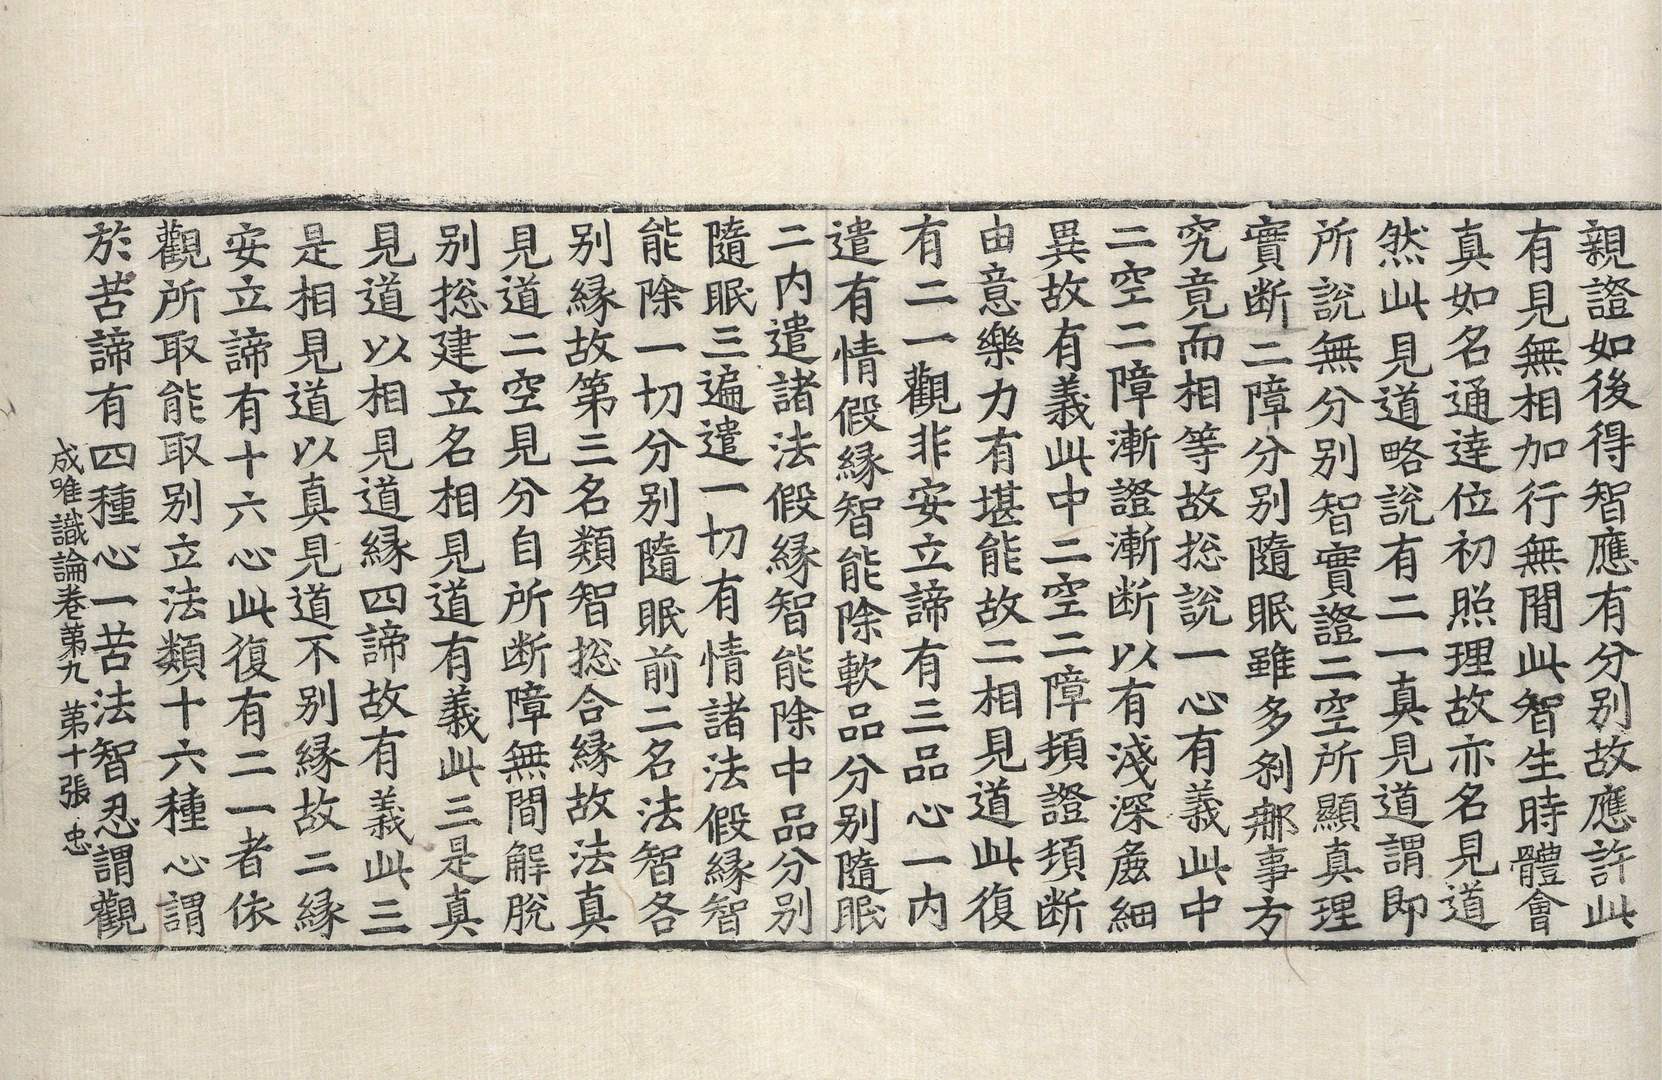 親證如後得智應有分别故應許此
有見無相加行無間此智生時體會
真如名通達位初照理故亦名見道
然此見道略說有二一真見道謂即
所說無分别智實證二空所顯真理
實断二障分别隨眠雖多剎那事方
究竟而相等故捴說一心有義此中
二空二障漸證漸断以有淺深麁細
異故有義此中二空二障頓證頓断
由意樂力有堪能故二相見道此復
有二一觀非安立諦有三品心一内
遣有情假縁智能除軟品分别隨眠
二内遣諸法假縁智能除中品分别
隨眠三遍遣一切有情諸法假縁智
能除一切分别隨眠前二名法智各
别縁故第三名類智捴合縁故法真
見道二空見分自所断障無間解脫
别捴建立名相見道有義此三是真
見道以相見道縁四諦故有義此三
是相見道以真見道不别縁故二縁
安立諦有十六心此復有二一者依
觀所取能取别立法類十六種心謂
於苦諦有四種心一苦法智忍謂觀
成唯識論卷第九 第十張 忠